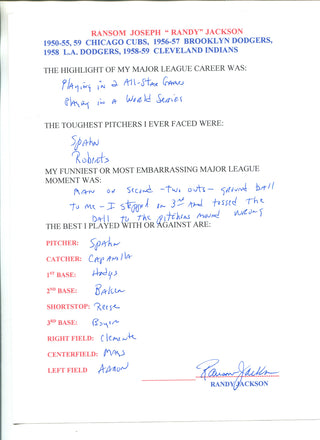 RANSOM JOSEPH "RANDY" JACKSON
1950-55, 59 CHICAGO CUBS, 1956-57 BROOKLYN DODGERS,
1958 L.A. DODGERS, 1958-59 CLEVELAND INDIANS
THE HIGHLIGHT OF MY MAJOR LEAGUE CAREER WAS:
Playing in 2 All-Star Games
Playing in a World Series
THE TOUGHEST PITCHERS I EVER FACED WERE:
Spahn
Roberts
MY FUNNIEST OR MOST EMBARRASSING MAJOR LEAGUE
MOMENT WAS:
Man on second - two outs - ground ball
to me - I stepped on 3rd and tossed the
ball to the pitchers mound wrong
THE BEST I PLAYED WITH OR AGAINST ARE:
PITCHER: Spahn
CATCHER: Campanella
1ST BASE: Hodges
2ND BASE: Baker
SHORTSTOP: Reese
3RD BASE: Boyer
RIGHT FIELD: Clemente
CENTERFIELD: Mays
LEFT FIELD Aaron
Ransom Jackson
RANDY JACKSON